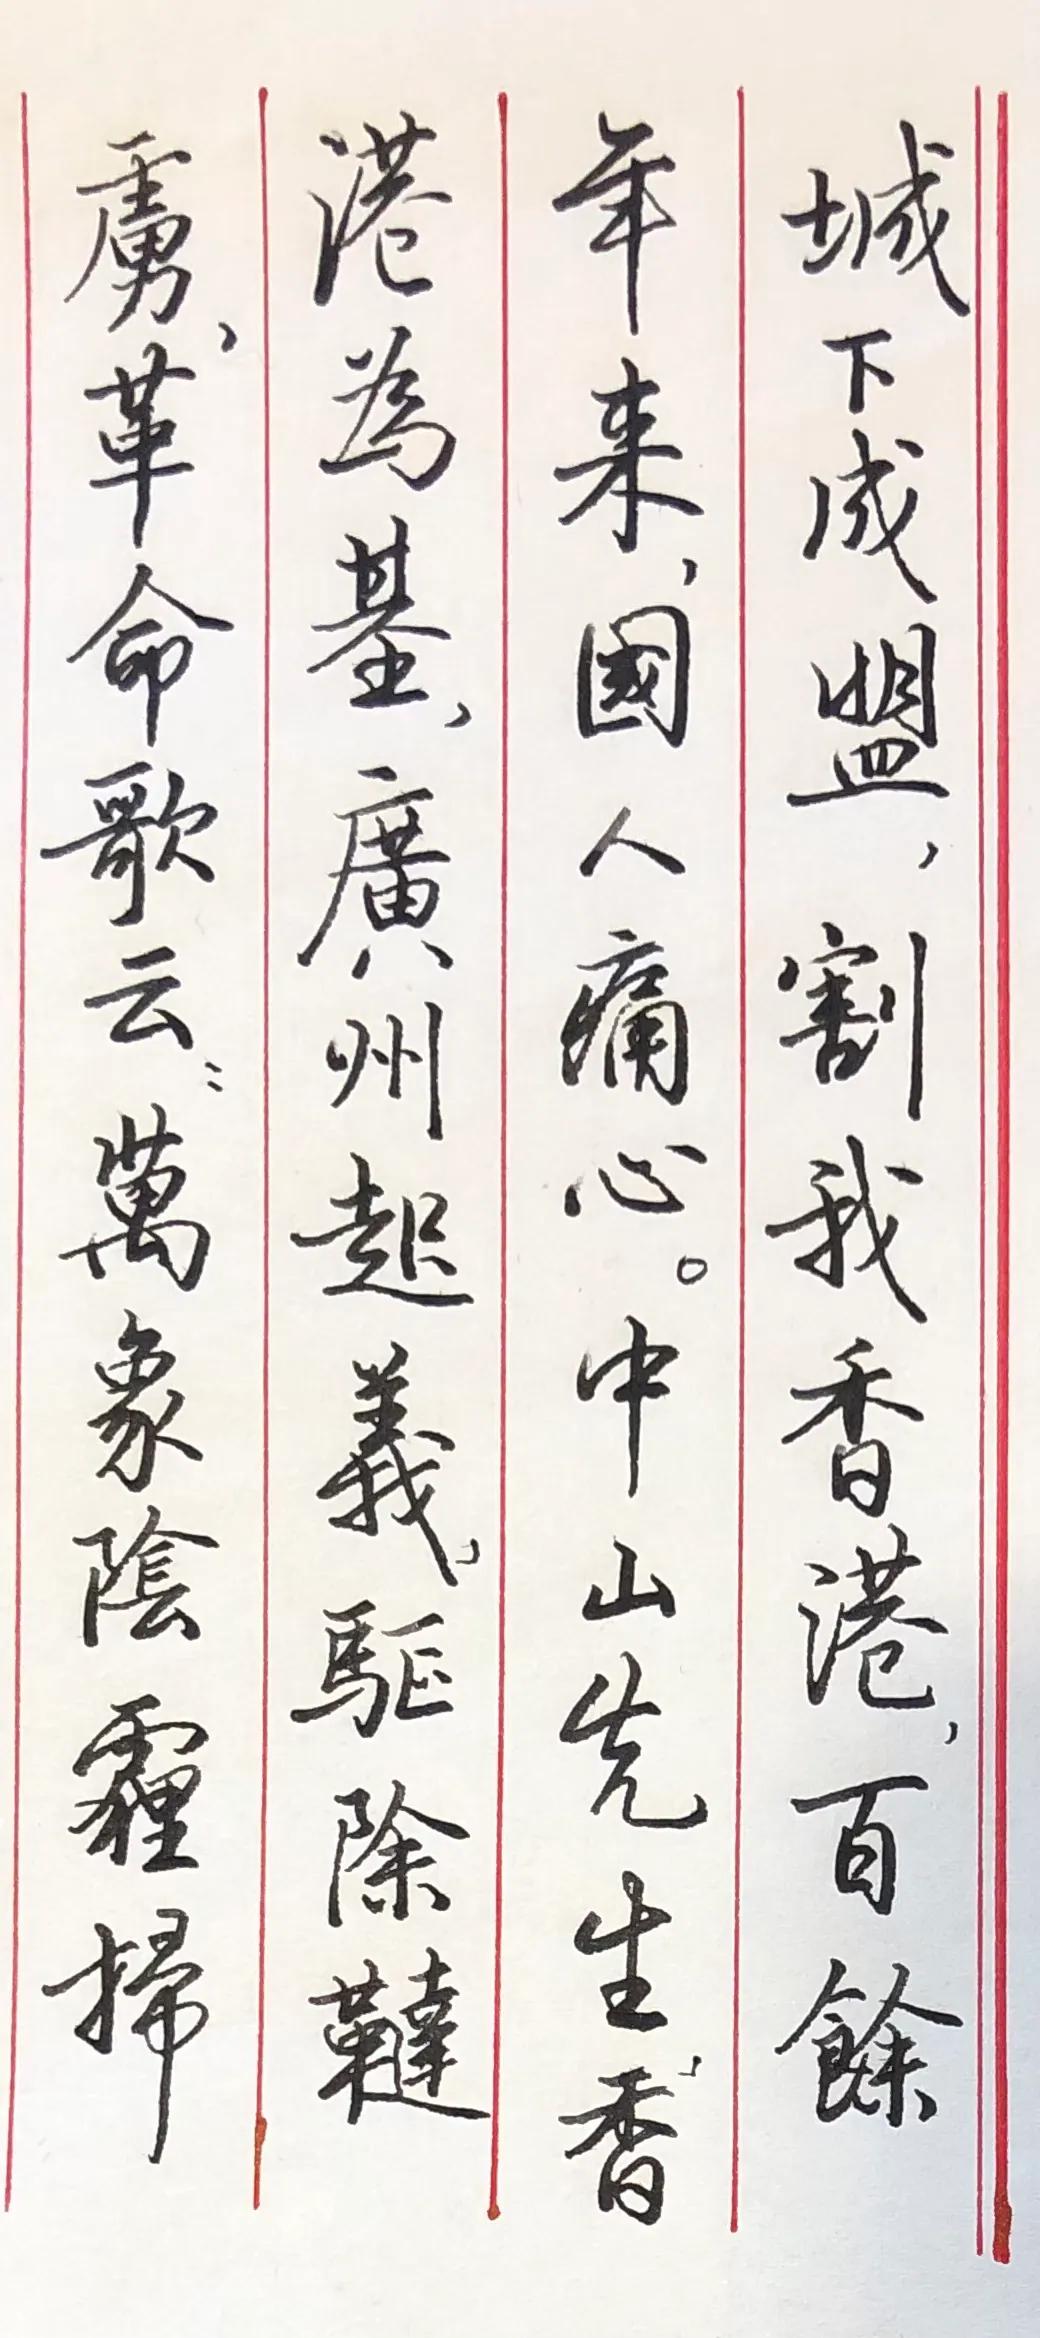 城下成盟，割我香港，百餘
年来，國人痛心。中山先生，香
港為基，廣州起義，驅除韃
虜，革命歌云：萬象陰霾掃